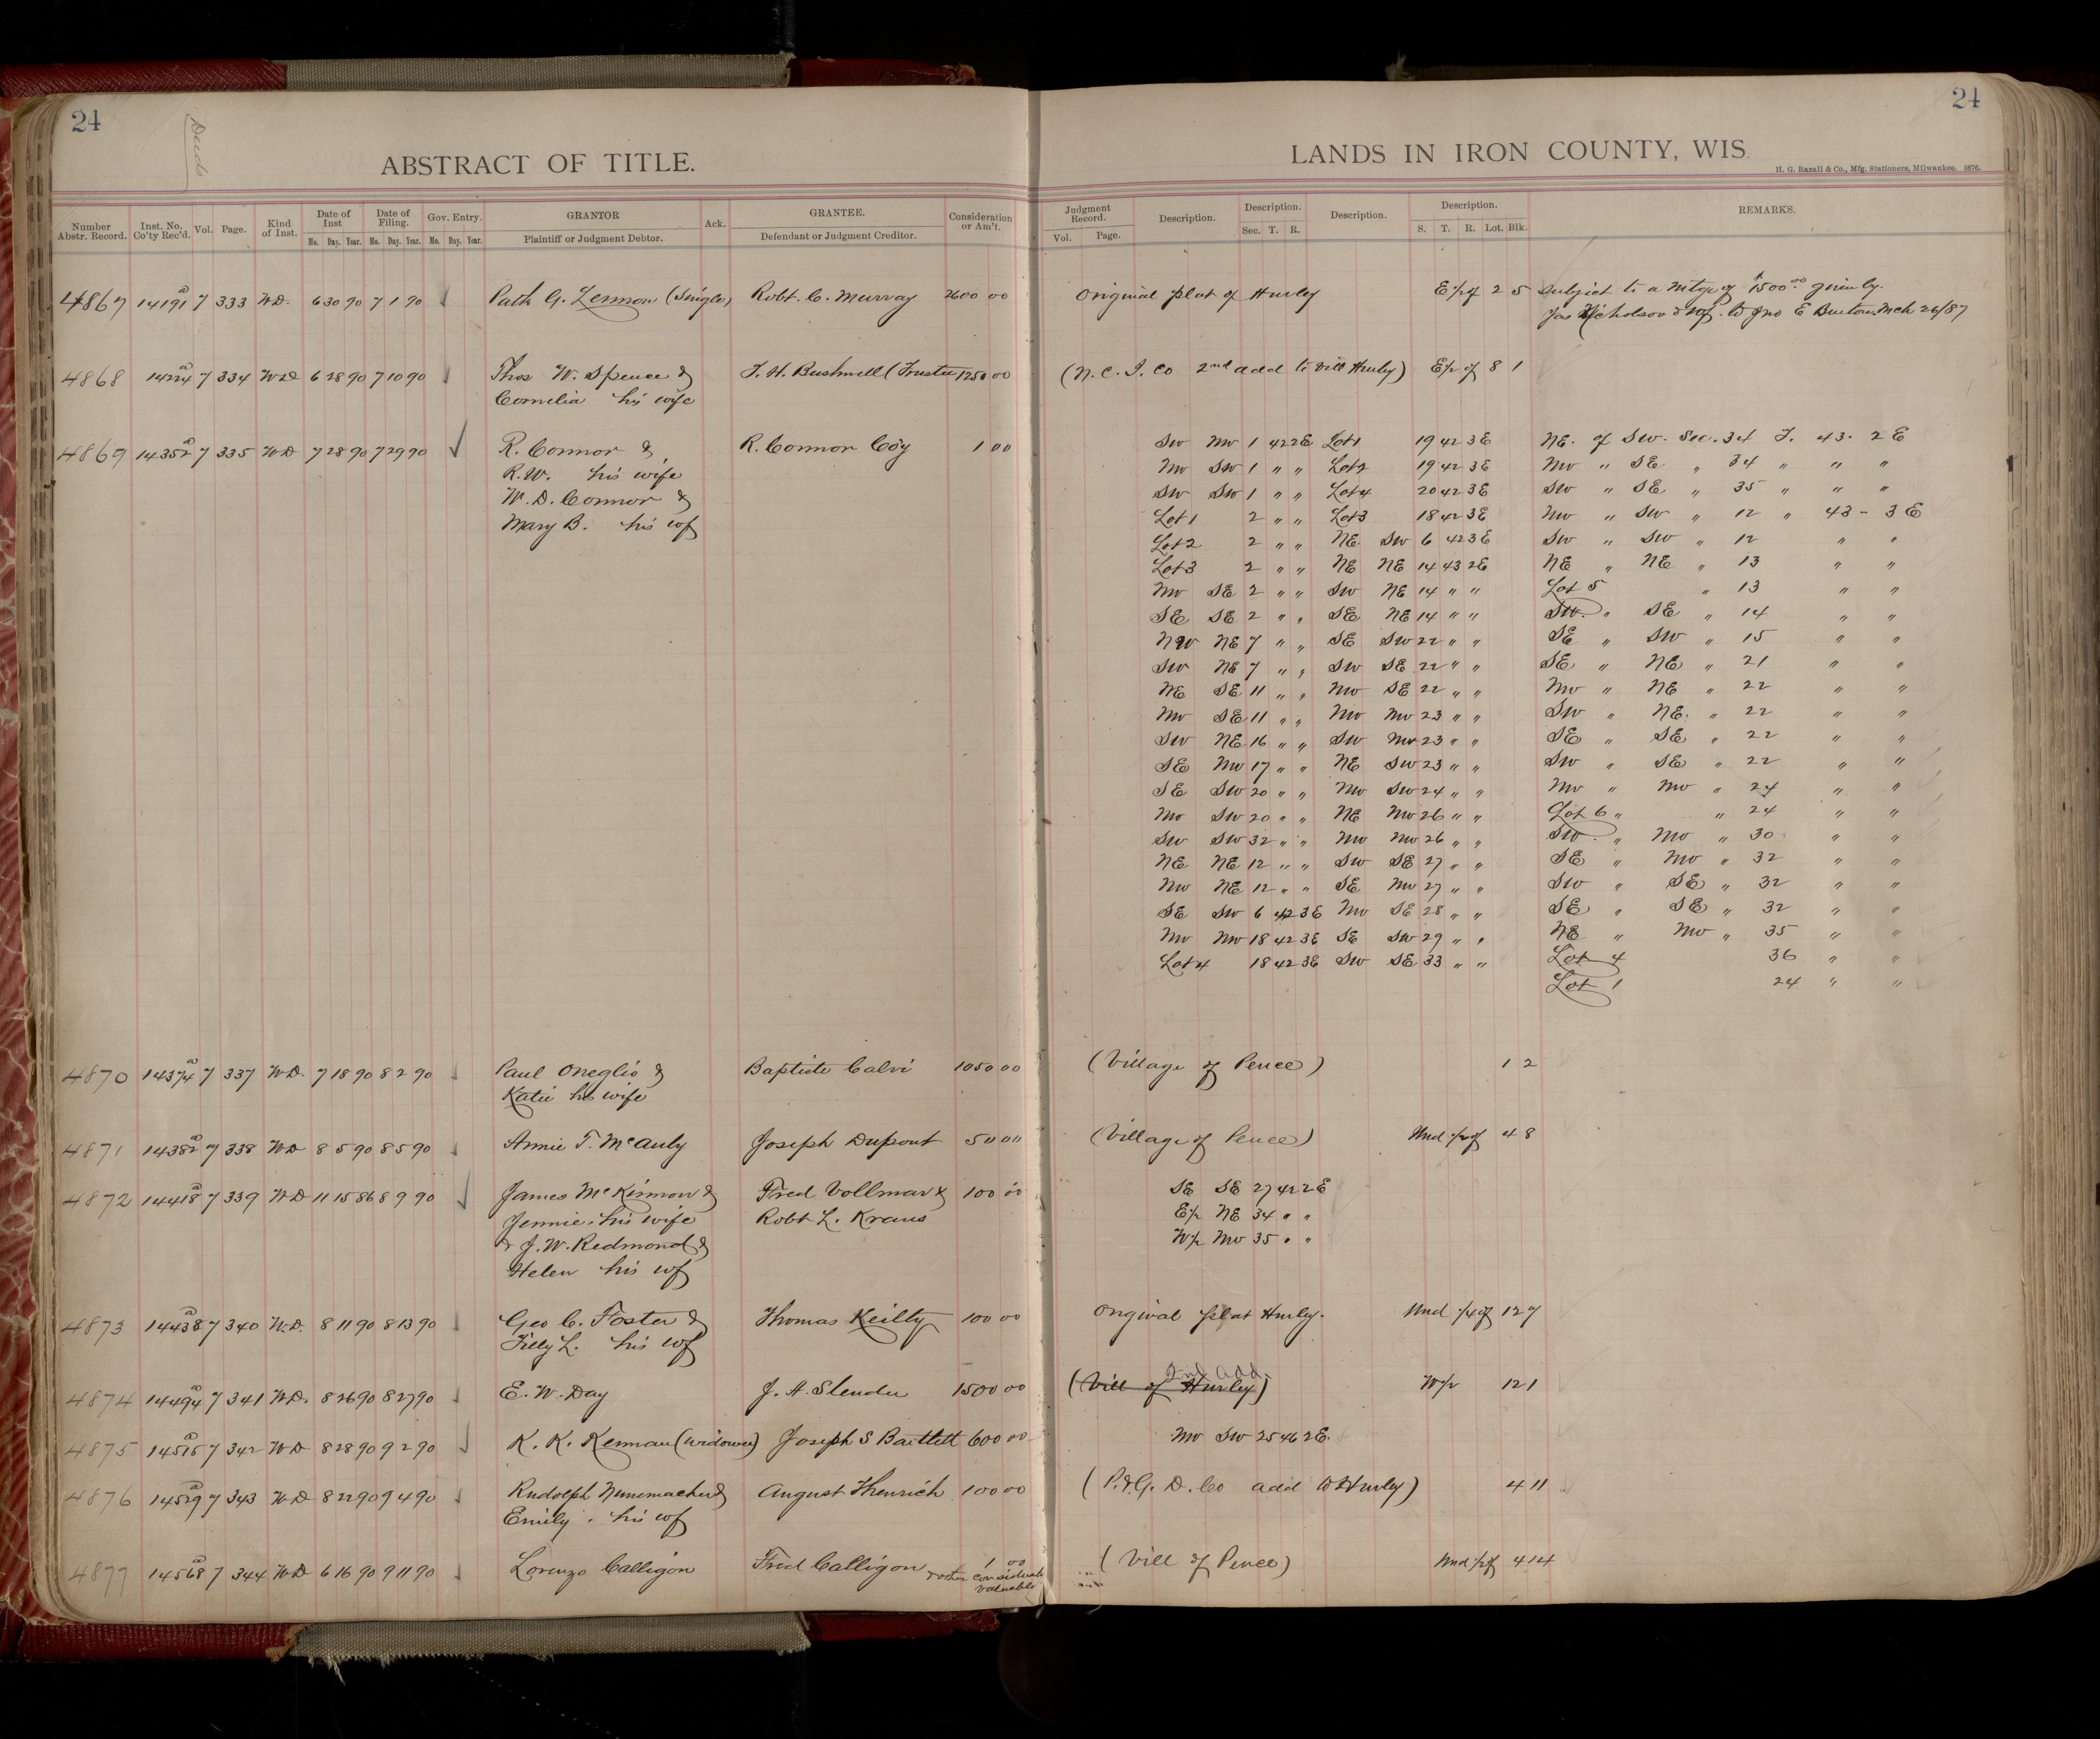 24
Deeds
ABSTRACT OF TITLE.
Number Abstr. Record. Inst. No. Co'ty Rec'd. Vol. Page. Kind of Inst. Date of Inst Mo. Day. Year. Date of Filing. Mo. Day. Year. Gov. Entry. Mo. Day. Year. GRANTOR Plaintiff or Judgment Debtor. Ack. GRANTEE. Defendant or Judgment Creditor. Consideration or Am't.
4867 14191 a 7 333 WD. 6 30 90 7 1 90 G. (Single) Robt. C. Murray 2600 00
4868 a 7 334 WD 6 28 90 7 10 90 Thos W. Spence & T. H. Bushnell (Trustee 1250 00
Cornelia his wife
4869 14352 a 7 335 WD 7 28 90 7 29 90 ✓ R. Connor & R. Connor Coy 1 00
R.W. his wife
W. D. Connor &
Mary B. his wf
4870 14374 a 7 337 WD. 7 18 90 8 2 90 Paul Oneglio & Baptiste Calvi 1050 00
Katie his wife
4871 14382 a 7 338 WD 8 5 90 8 5 90 Annie T. McAuly Joseph Dupont 50 00
4872 14418 a 7 339 WD 11 15 86 8 9 90 ✓ James McKinnon & Fred Vollmar & 100 00
Jennie, his wife Robt L. Kraus
& J. W. Redmond &
Helen his wf
4873 14438 a 7 340 W.D. 8 11 90 8 13 90 Geo C. Foster & Thomas Keilty 100 00
L. his wf
4874 14494 a 7 341 WD. 8 26 90 8 27 90 E. W. Day J. A. 1500 00
4875 14515 a 7 342 WD 8 28 90 9 2 90 ✓ K. K. Kennan (widower) Joseph S Bartlett 600 00
4876 14529 a 7 343 WD 8 22 90 9 4 90 Rudolph Nunemacher & August 100 00
Emily, his wf
4877 14568 a 7 344 WD 6 16 90 9 11 90 Lorenzo Calligon Fred Calligon 1 00
& other considerable
valuable
24
LANDS IN IRON COUNTY, WIS.
H. G. Razall & Co., Mfg. Stationers, Milwaukee. 5876.
Judgment Record. Vol. Page. Description. Description. Sec. T. R. Description. Description. S. T. R. Lot. Blk. REMARKS.
Original plat of Hurley E½ of 2 5 Subject to a Mtge of $1500.00 given by.
Jas Nicholson & wf. to Jno E Burton Mch 26/87
(N. C. I. Co 2nd add to Vill Hurley) E½ of 8 1
SW NW 1 42 2E Lot 1 19 42 3E NE. of SW. Sec. 34 T. 43. 2 E
NW SW 1 " " Lot 2 19 42 3E NW " SE " 34 " " "
SW SW 1 " " Lot 4 20 42 3E SW " SE " 35 " " "
Lot 1 2 " " Lot 3 18 42 3E NW " SW " 12 " 43 - 3 E
Lot 2 2 " " NE SW 6 42 3E SW " SW " 12 " "
Lot 3 2 " " NE NE 14 43 2E NE " NE " 13 " "
NW SE 2 " " SW NE 14 " " Lot 5 " 13 " "
SE SE 2 " " SE NE 14 " " SW. " SE " 14 " "
NW NE 7 " " SE SW 22 " " SE " SW " 15 " "
SW NE 7 " " SW SE 22 " " SE " NE " 21 " "
NE SE 11 " " NW SE 22 " " NW " NE " 22 " "
NW SE 11 " " NW NW 23 " " SW " NE. " 22 " "
SW NE 16 " " SW NW 23 " " SE " SE " 22 " "
SE NW 17 " " NE SW 23 " " SW " SE " 22 " "
SE SW 20 " " NW SW 24 " " NW " NW " 24 " "
NW SW 20 " " NE NW 26 " " Lot 6 " " 24 " "
SW SW 32 " " NW NW 26 " " SW " NW " 30 " "
NE NE 12 " " SW SE 27 " " SE " NW " 32 " "
NW NE 12 " " SE NW 27 " " SW " SE " 32 " "
SE SW 6 42 3E NW SE 28 " " SE " SE " 32 " "
NW NW 18 42 3E SE SW 29 " " NE " NW " 35 " "
Lot 4 18 42 3E SW SE 33 " " Lot 4 36 " "
Lot 1 24 " "
(Village of Pence) 1 2
(Village of Pence) Und ½ of 4 8
SE SE 27 42 2E
E½ NE 34 " "
W½ NW 35 " "
Original plat Hurley. Und ¼ of 12 7
2nd add.
(Vill of Hurley) W½ 12 1
NW SW 25 46 2E.
(P. & G. D. Co add to Hurley) 4 11
(Vill of Pence) Und ½ of 4 14